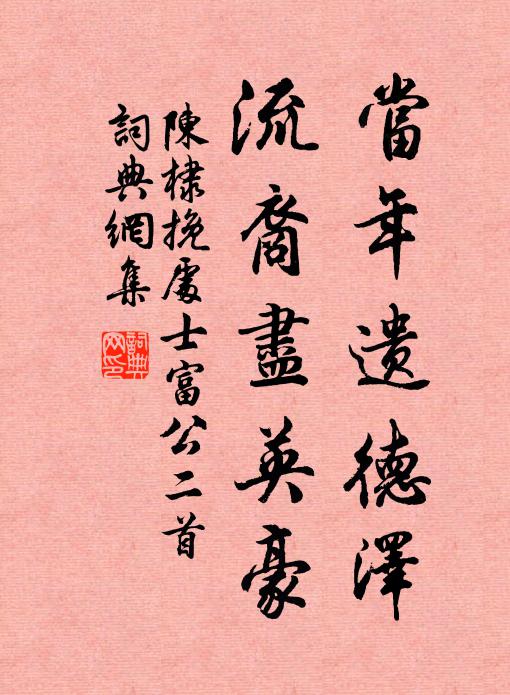 當年遺德澤
流裔盡英豪
陳棣挽處士富公二首
詞典網集
詞典網印